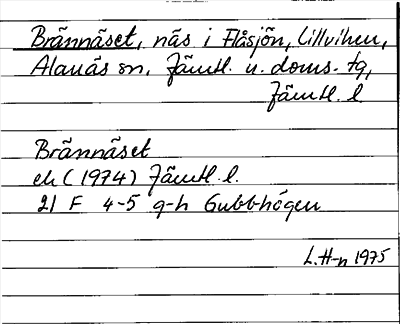 Brännäset, näs i Flåsjön, Lillviken,
Alanäs sn, Jämtl. n. doms. tg,
Jämtl. l.
Brännäset
ek (1974) Jämtl. l.
21 F 4-5 g-h Gubbhögen
L. H-n 1975